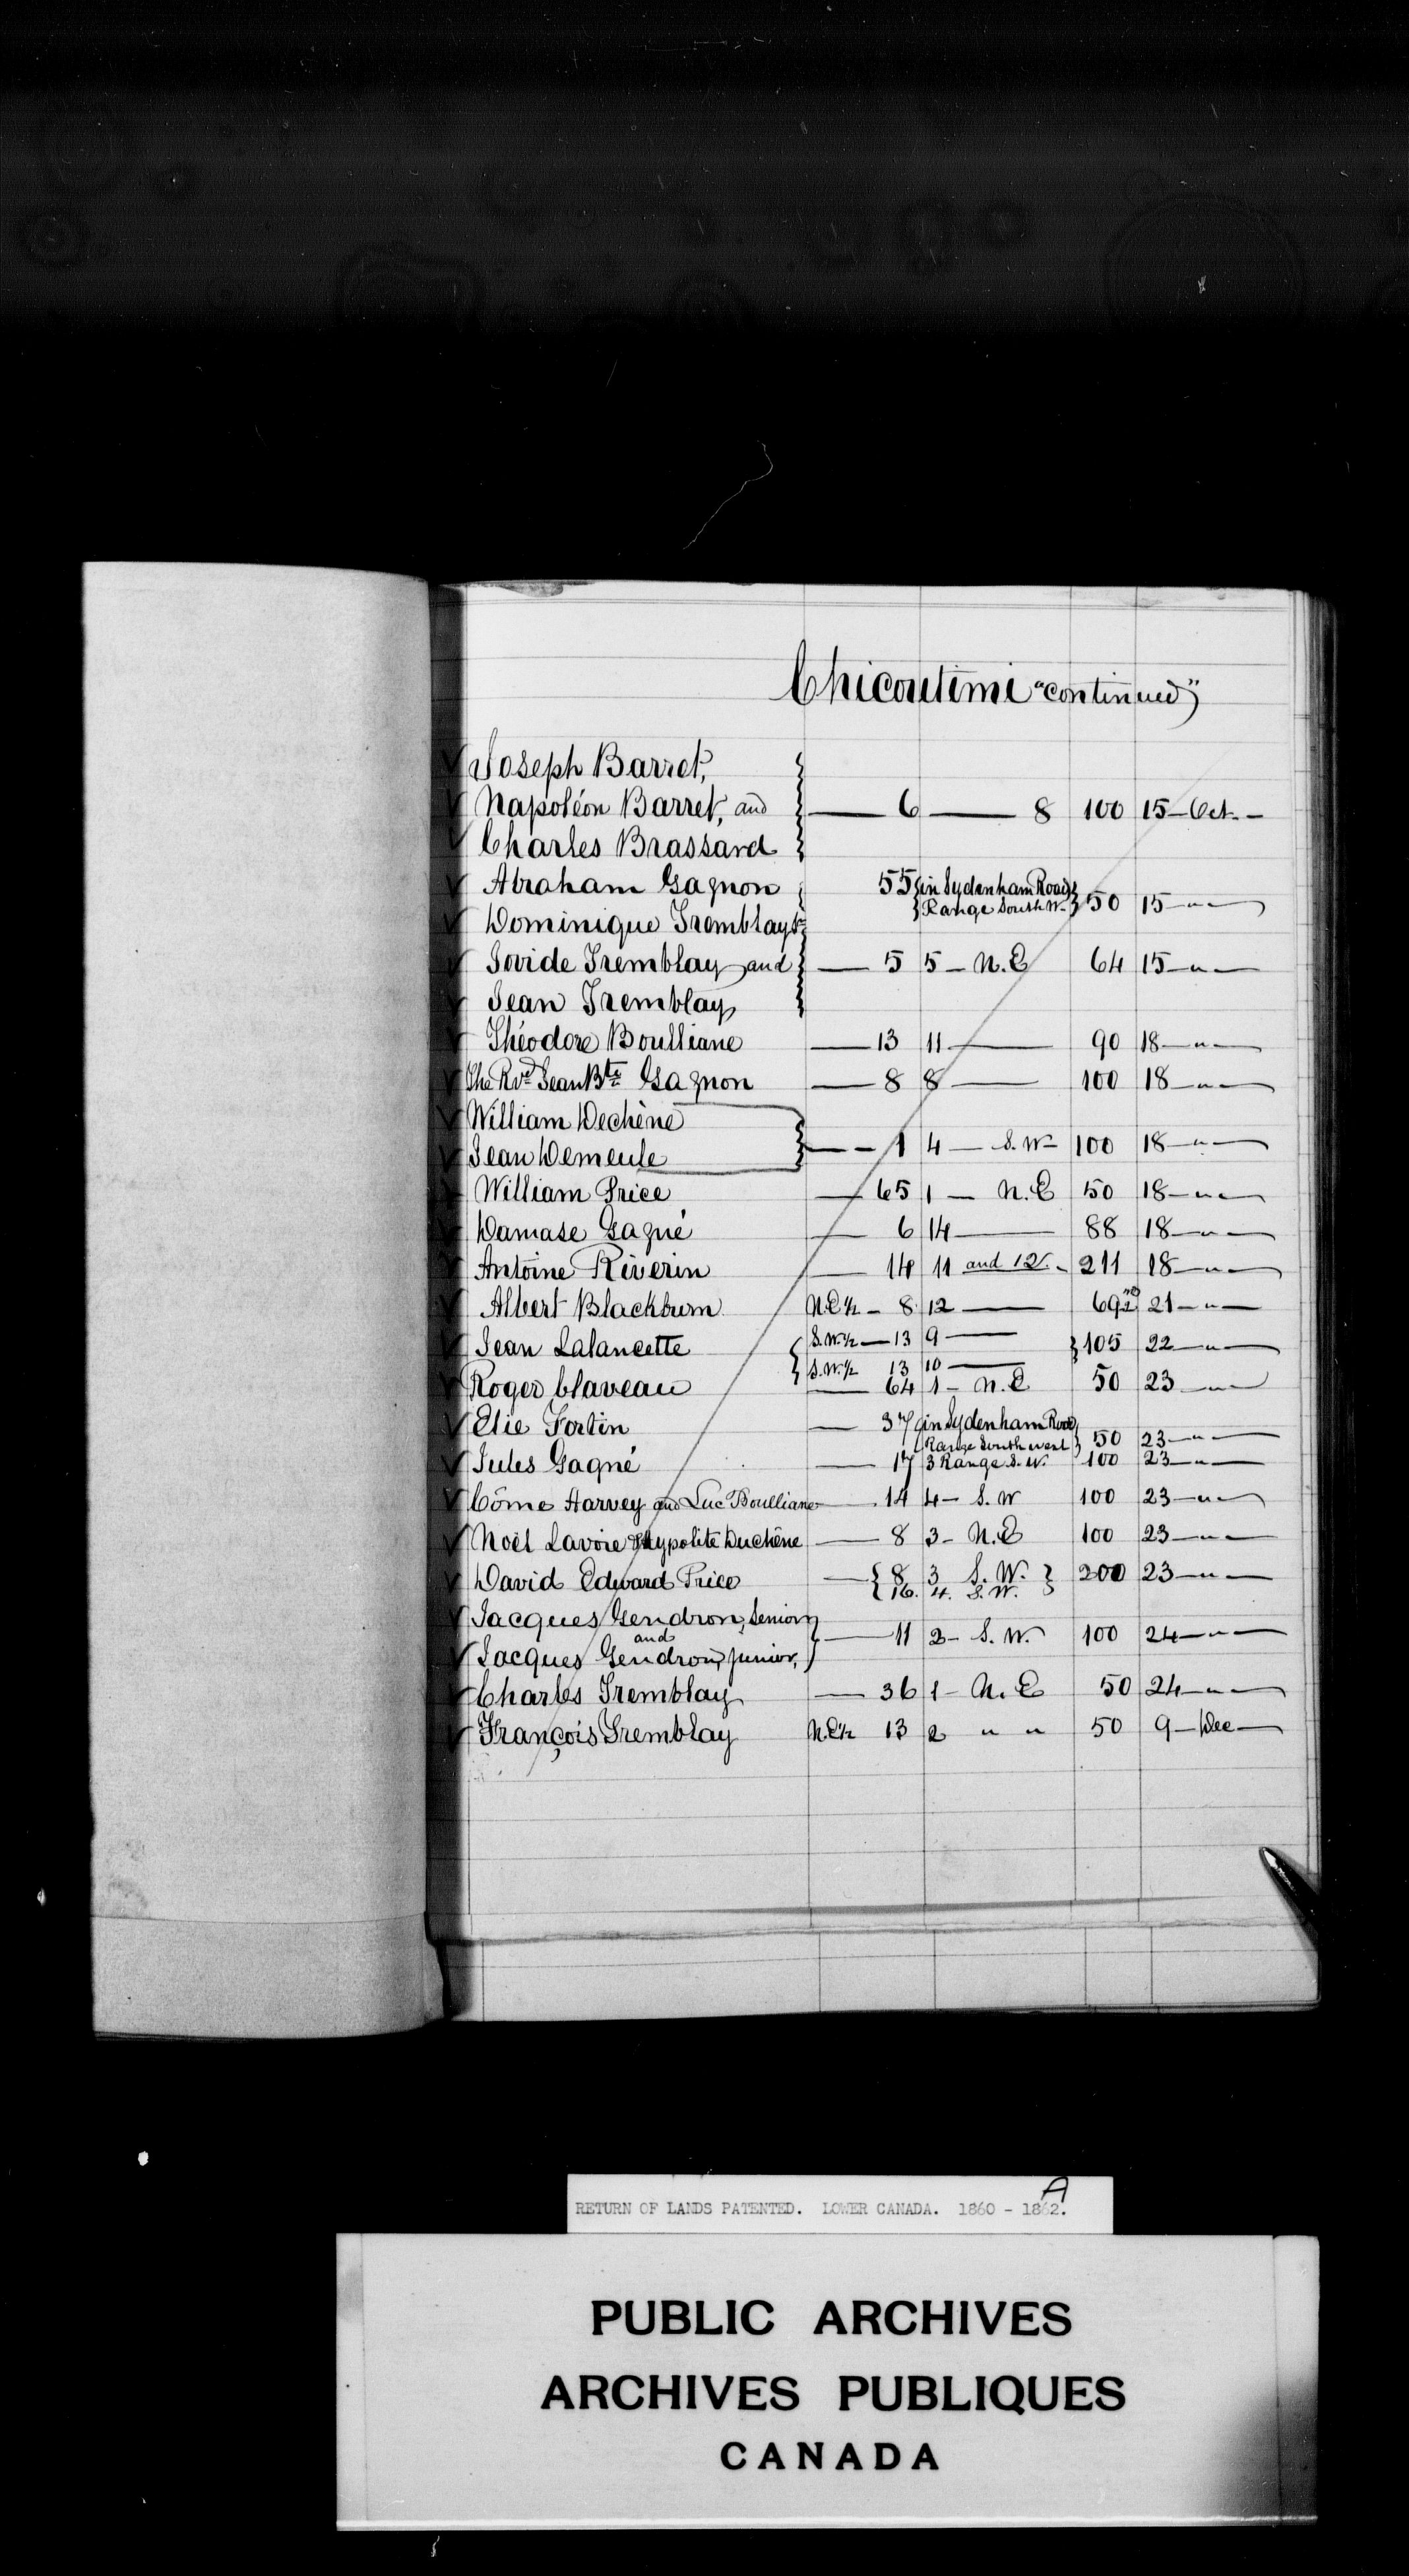 Chicoutimi "continued"
Joseph Barret,
Napoléon Barret, and — 6 — 8 100 15 — Oct. —
Charles Brassard
Abraham Gagnon 55 in Sydenham Road
Range South W. 50 15 — " —
Dominique Tremblay
Jovide Tremblay and — 5 5 — N.E 64 15 — " —
Jean Tremblay
Théodore Boulliane — 13 11 — 90 18 — " —
The Rvd Jean Bte Gagnon — 8 8 — 100 18 — " —
William Dechène
Jean Demeule — — 1 4 — S.W — 100 18 — " —
William Price — 65 1 — N.E 50 18 — " —
Damase Gagné — 6 14 — 88 18 — " —
Antoine Riverin — 14 11 and 12. — 211 18 — " —
Albert Blackburn N.E ½ — 8 12 — 69 21 — " —
Jean Lalancette S.W. ½ — 13 9 — 105 22 — " —
S.W. ½ 13 10 —
Roger Claveau — 64 1 — N.E 50 23 — " —
Elie Fortin — 37 in Sydenham Road
Range South west 50 23 — " —
Jules Gagné — 17 3 Range S.W. 100 23 — " —
Côme Harvey and Luc Boulliane — 14 4 — S.W 100 23 — " —
Noël Lavoie & Hypolite Duchêne — 8 3 — N.E 100 23 — " —
David Edward Price — 8 3 S.W. 200 23 — " —
16. 4. S.W.
Jacques Gendron, Senior
and — 11 2 — S.W. 100 24 — " —
Jacques Gendron, junior,
Charles Tremblay — 36 1 — N.E 50 24 — " —
François Tremblay N.E ½ 13 2 " " 50 9 — Dec —
A
RETURN OF LANDS PATENTED. LOWER CANADA. 1860 - 1862.
PUBLIC ARCHIVES
ARCHIVES PUBLIQUES
CANADA